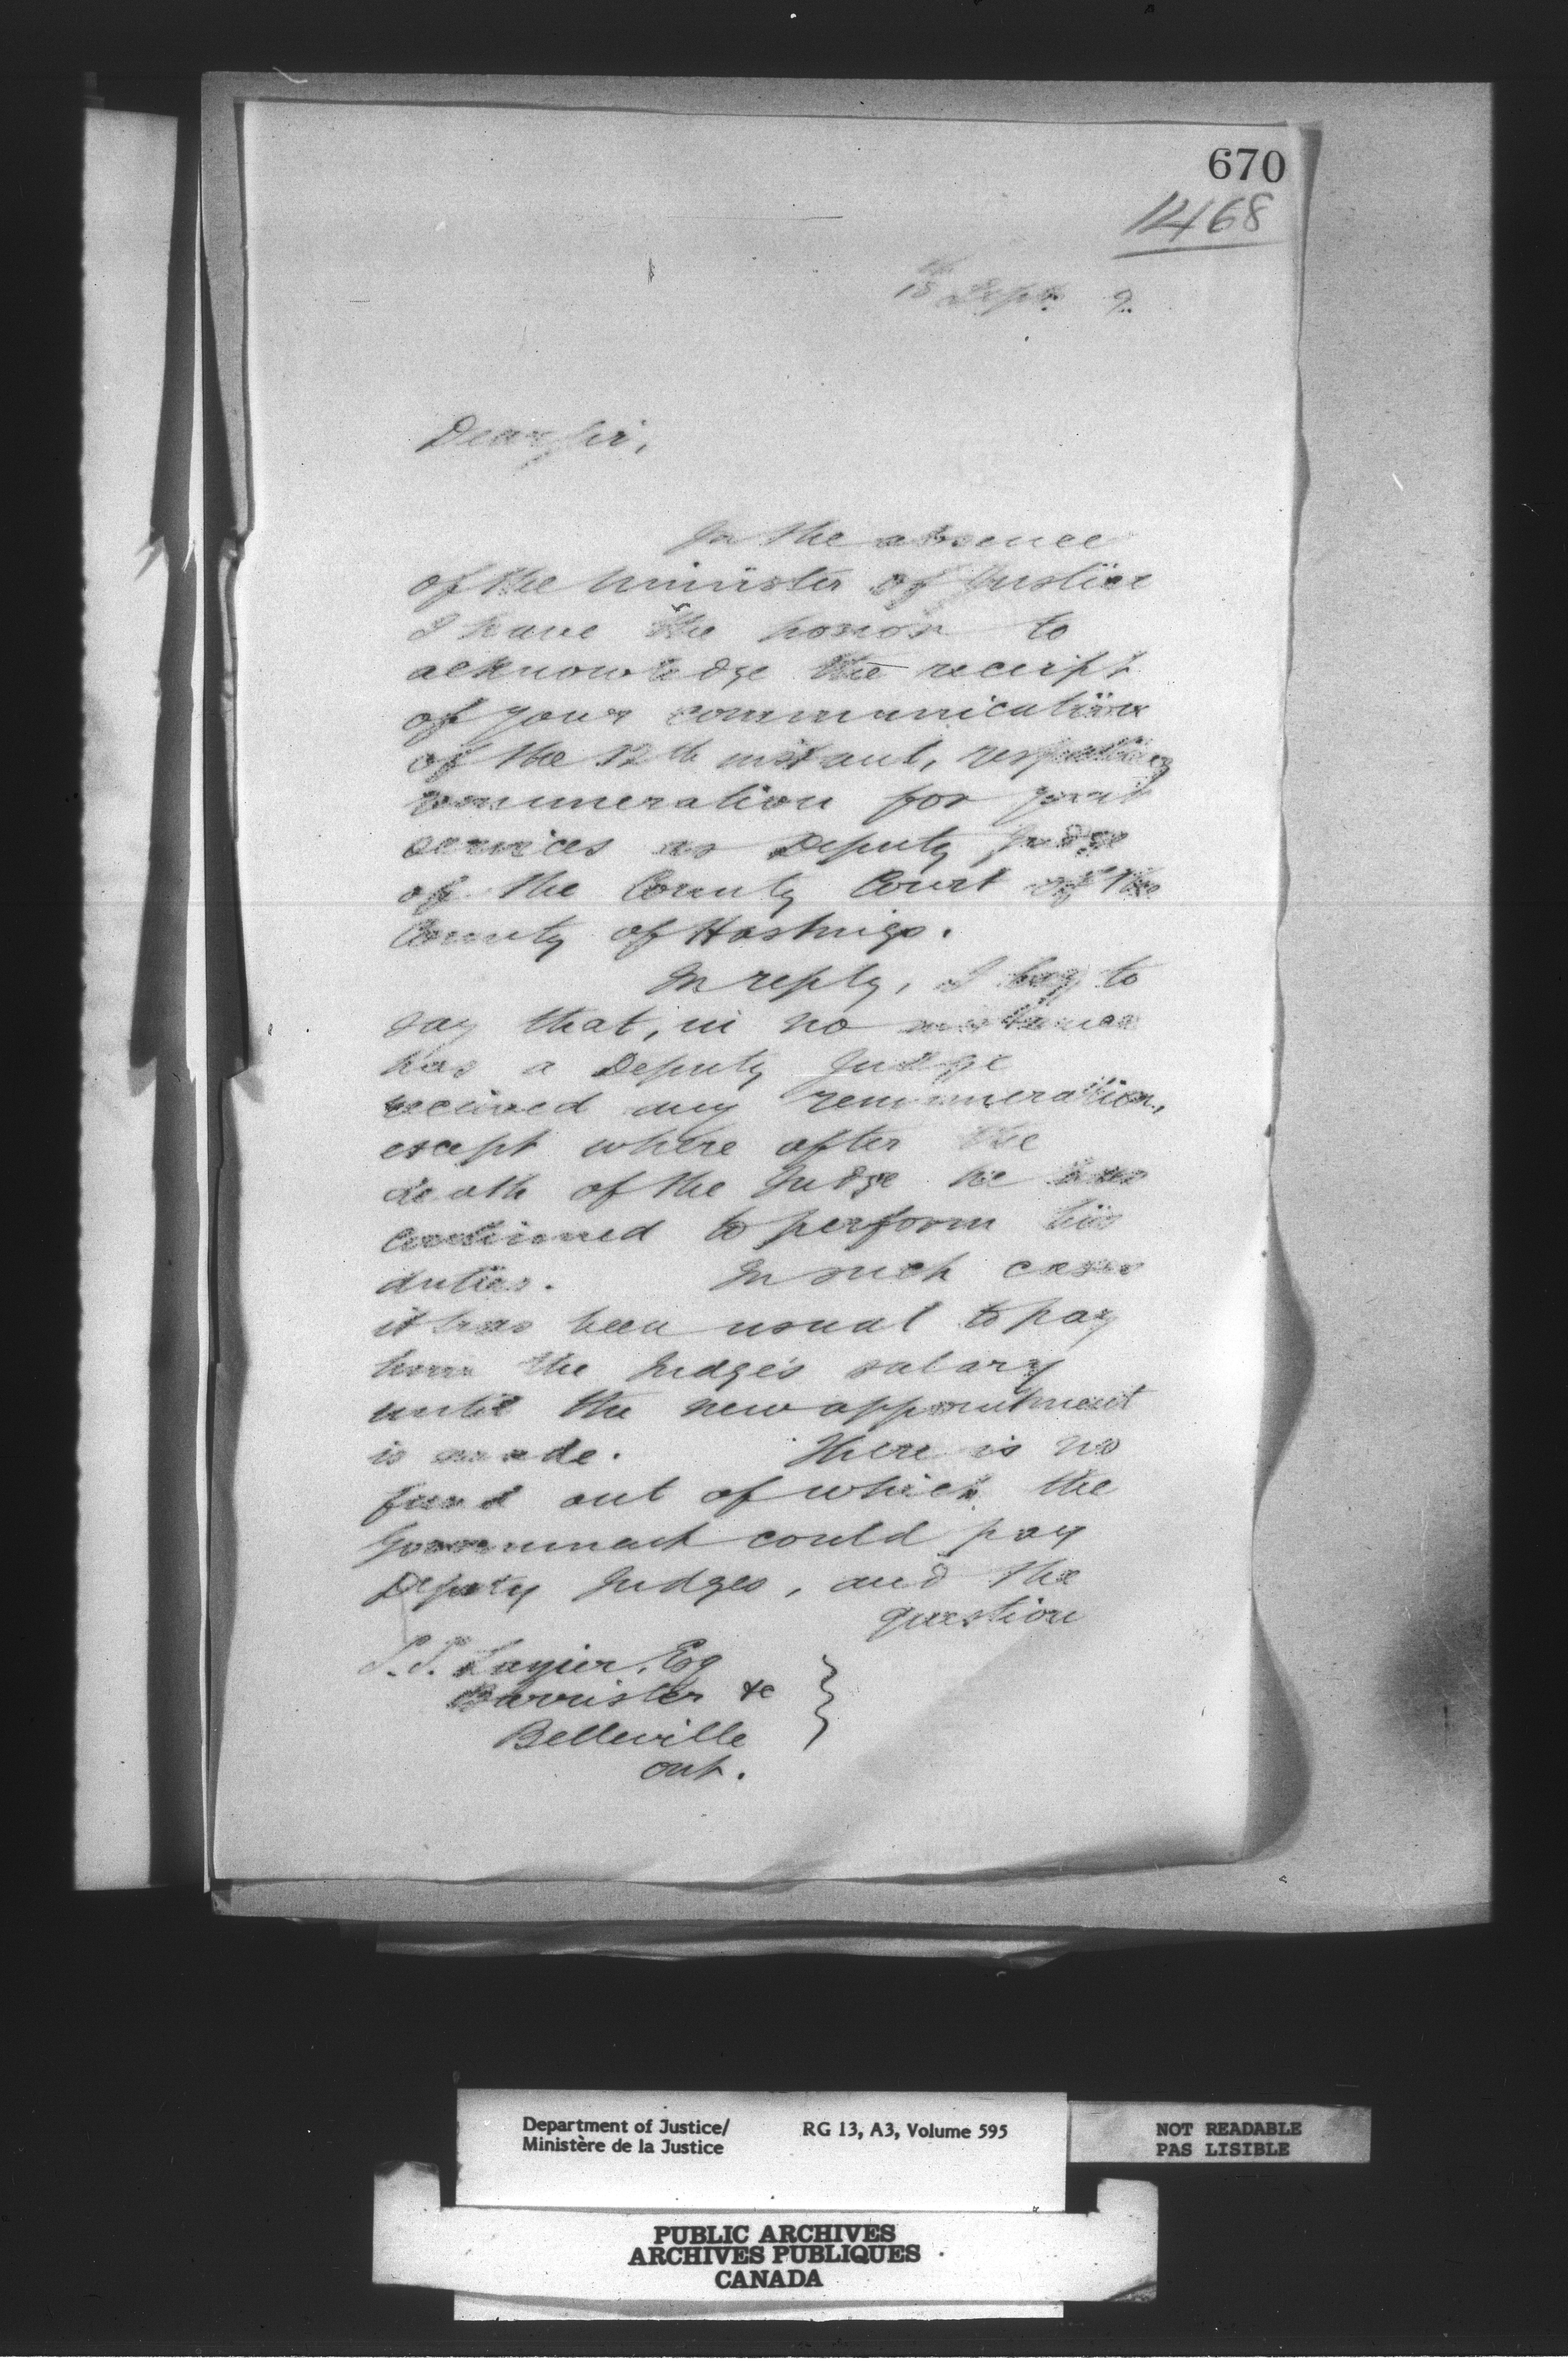 670
1468
15th Sept. 9.
Dear Sir,
In the absence
of the Minister of Justice
I have the honor to
acknowledge the receipt
of your communication
of the 12th instant, respecting
remuneration for your
services as Deputy Judge
of the County Court of the
County of Hastings.
In reply, I beg to
say that, in no instance
has a Deputy Judge
received any remuneration,
except where after the
death of the Judge he has
continued to perform his
duties. In such cases
it has been usual to pay
him the Judge's salary
until the new appointment
is made. There is no
fund out of which the
Government could pay
Deputy Judges, and the
question
S.S. Lazier, Esq
Barrister &c
Belleville
Ont.
Department of Justice/
Ministère de la Justice
RG 13, A3, Volume 595
NOT READABLE
PAS LISIBLE
PUBLIC ARCHIVES
ARCHIVES PUBLIQUES
CANADA